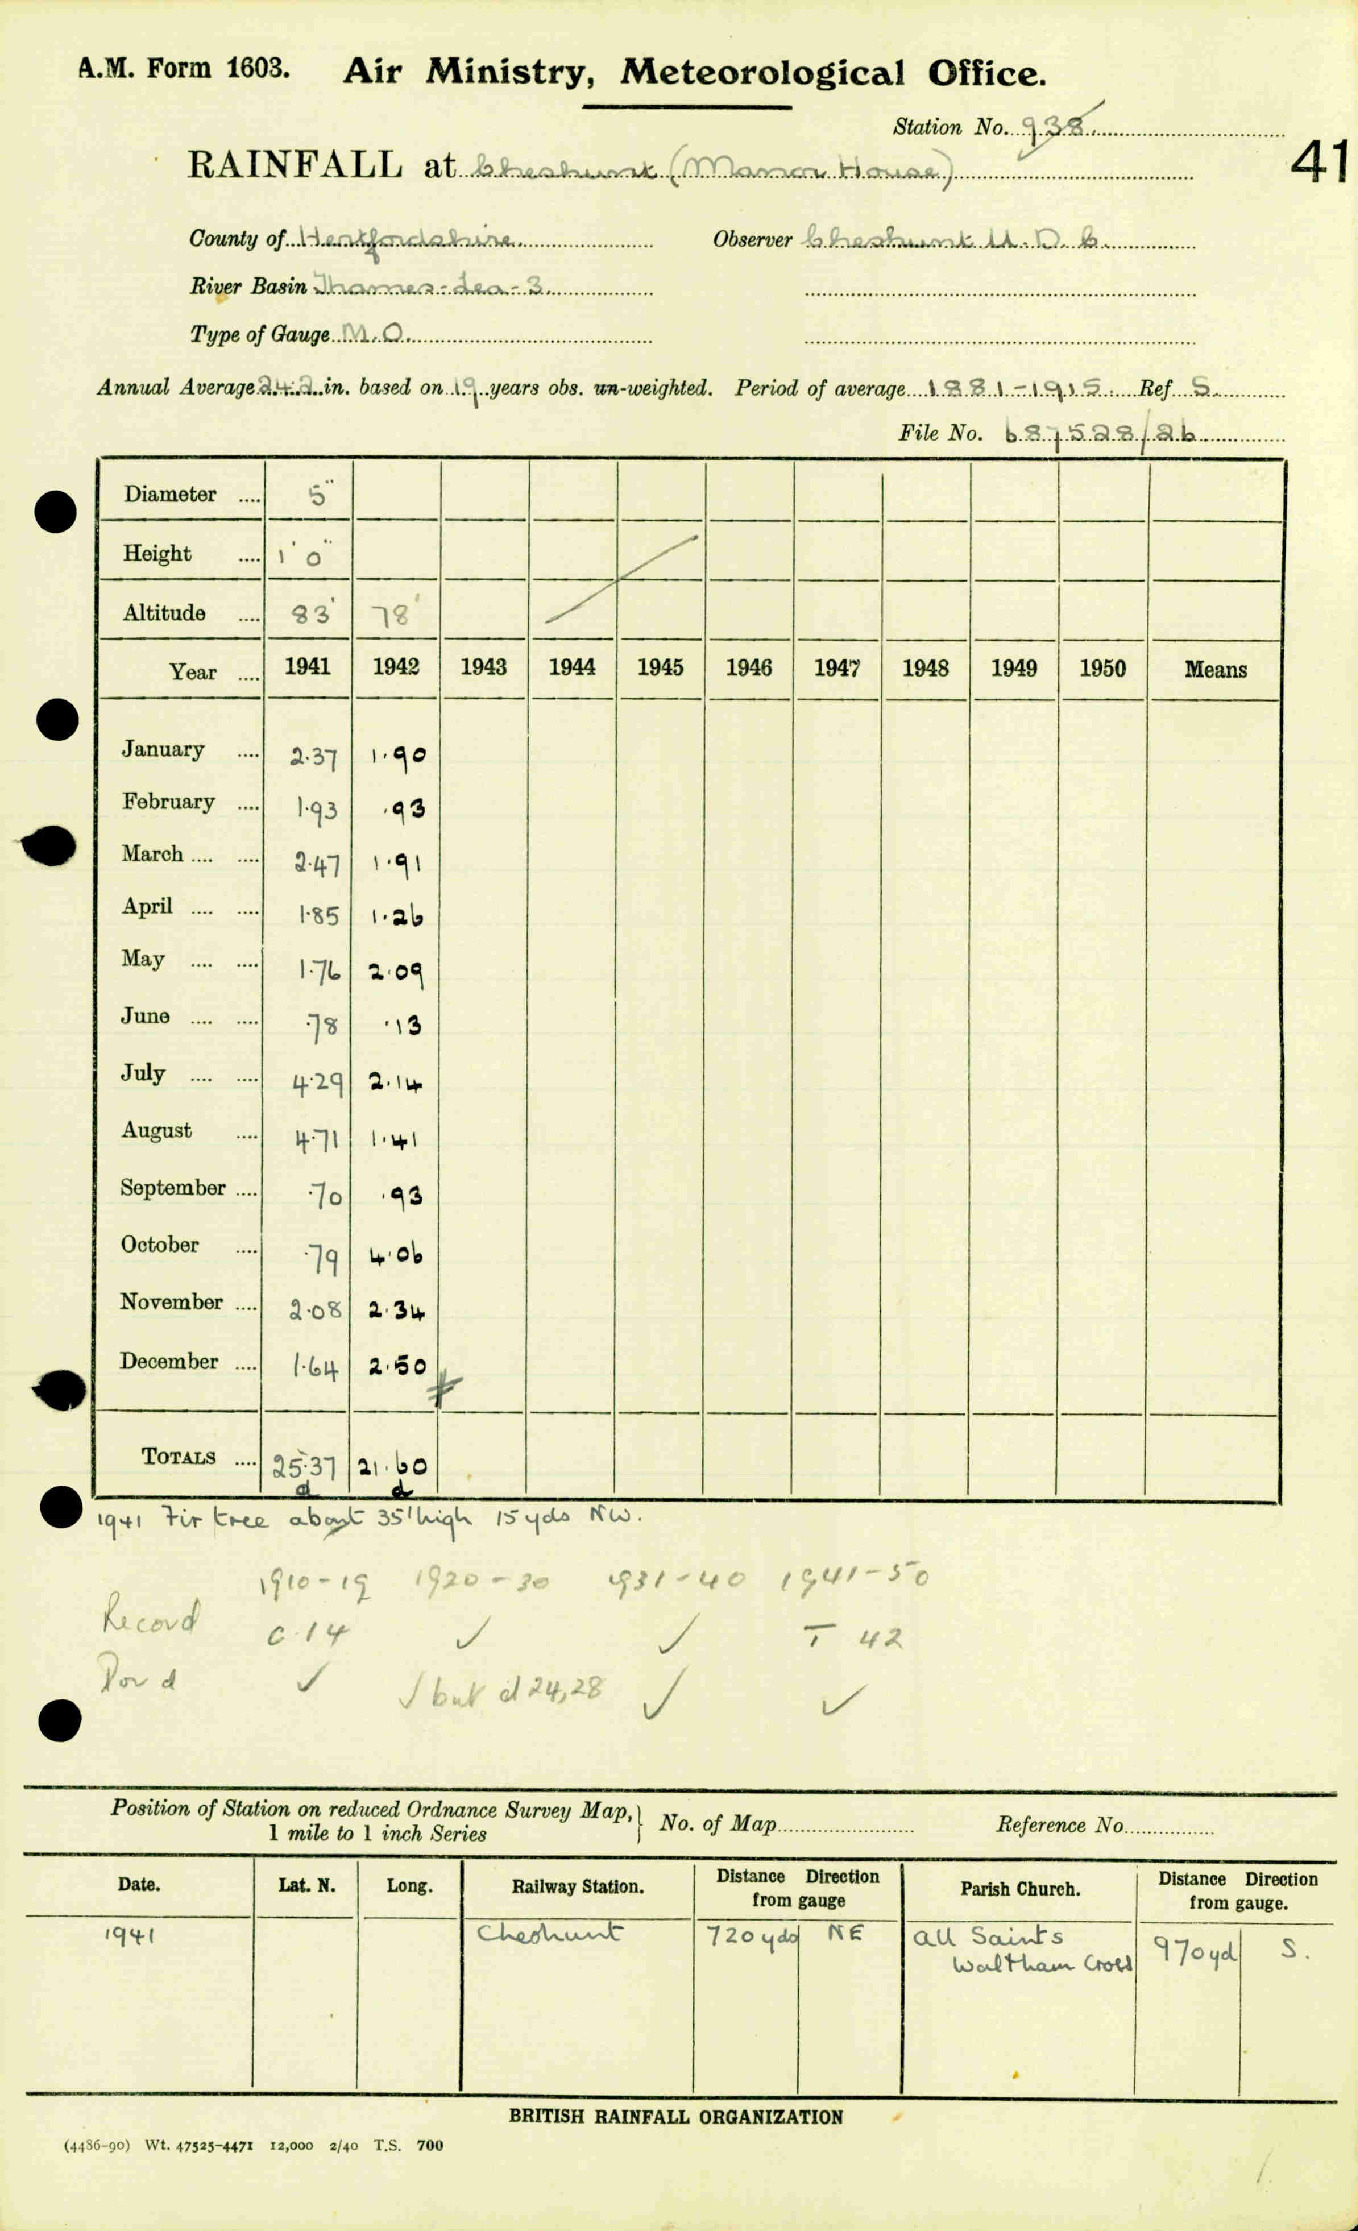 A.M. Form 1603. Air Ministry, Meteorological Office.
Station No. 938
41
RAINFALL at Cheshunt (Manor House)
County of Hertfordshire Observer Cheshunt U.D.C.
River Basin Thames-Lea-3
Type of Gauge M.O.
Annual Average 24.2 in. based on 19 years obs. un-weighted. Period of average 1881-1915. Ref S.
File No. 687528/26
Diameter .... 5"
Height .... 1' 0"
Altitude .... 83' 78'
Year .... 1941 1942 1943 1944 1945 1946 1947 1948 1949 1950 Means
January .... 2.37 1.90
February .... 1.93 .93
March .... .... 2.47 1.91
April .... .... 1.85 1.26
May .... .... 1.76 2.09
June .... .... .78 .13
July .... .... 4.29 2.14
August .... 4.71 1.41
September .... .70 .93
October .... .79 4.06
November .... 2.08 2.34
December .... 1.64 2.50
TOTALS .... 25.37 21.60
d d
1941 Fir tree about 35' high 15 yds NW.
1910-19 1920-30 1931-40 1941-50
Record C 14 ✓ ✓ T 42
D or d ✓ ✓ but d 24,28 ✓ ✓
Position of Station on reduced Ordnance Survey Map, 1 mile to 1 inch Series } No. of Map Reference No
Date. Lat. N. Long. Railway Station. Distance Direction from gauge Parish Church. Distance Direction from gauge.
1941 Cheshunt 720 yds NE All Saints Waltham Cross 970 yd S.
BRITISH RAINFALL ORGANIZATION
(4486-90) Wt. 47525-4471 12,000 2/40 T.S. 700